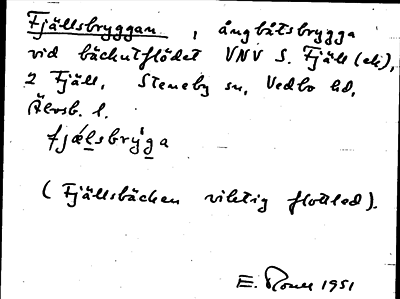 Fjällsbryggan, ångbåtsbrygga
vid bäckutflödet VNV S. Fjäll (ek),
2 Fjäll, Steneby sn, Vedbo hd,
Älvsb. l.
fjǽlsbrỳga
(Fjällsbäcken viktig flottled).
E. 1951